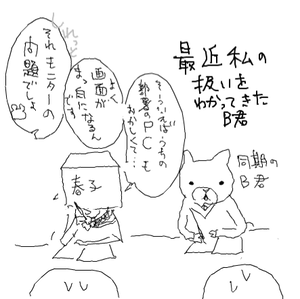 最近私の
扱いを
わかってきた
B君
そういえばうちの
部署のPCも
おかしくて…
よく
画面が
まっ白になるん
です
それモニターの
問題でしょ
春子
同期の
B君